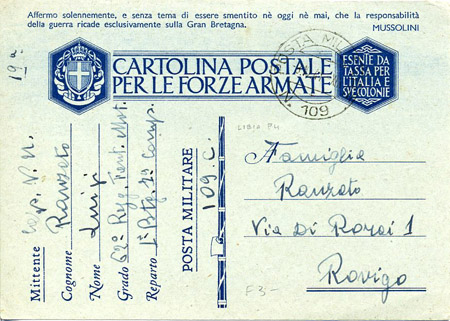 Affermo solennemente, e senza tema di essere smentito nè oggi nè mai, che la responsabilità
della guerra ricade esclusivamente sulla Gran Bretagna.
MUSSOLINI
19a
CARTOLINA POSTALE
PER LE FORZE ARMATE
ESENTE DA
TASSA PER
L'ITALIA E
SUE COLONIE
POSTA MIL
N. 109
LIBIA P4
Mittente
Cognome Ranzato
Nome Luigi
Grado 62° Regg. Fant. Mot.
Reparto 1° Btg. 1a Comp.
POSTA MILITARE 109. C.
Famiglia
Ranzato
Via Di Rorai 1
Rovigo
F 3-